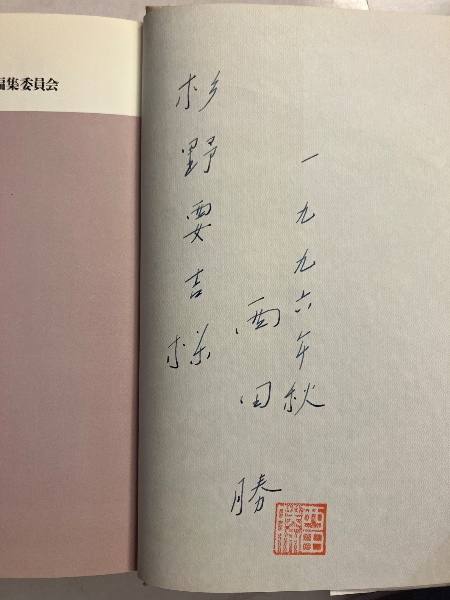 編集委員会
一九九六年秋
西田勝
杉野要吉様
西田
勝印